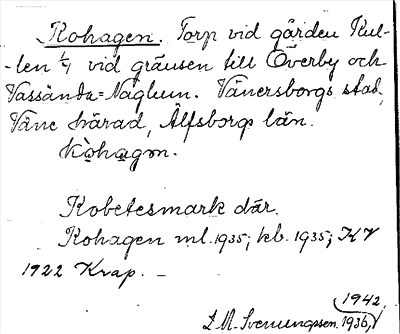 Kohagen. Torp vid gården Kul-
-len 1/4 vid gränsen till Överby och
Vassända-Naglum. Vänersborgs stad,
Väne härad, Älfsborgs län.
kòhagən.
Kobetesmark där.
Kohagen ml. 1935; kb. 1935; KV
1922 Krap. –
1942.
L. M. Svenungsson. 1936,